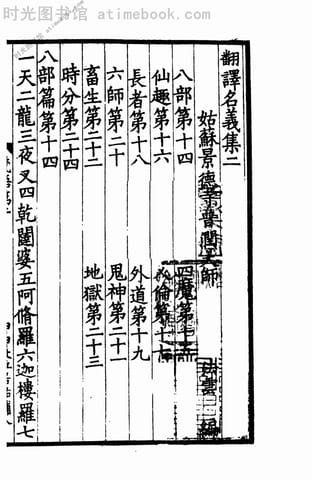 时光图书馆 - atimebook.com
翻譯名義集二
姑蘇景德寺普潤大師 法雲 編
八部第十四 四魔第十五
仙趣第十六 人倫第十七
長者第十八 外道第十九
六師第二十 鬼神第二十一
畜生第二十二 地獄第二十三
時分第二十四
八部篇第十四
一天二龍三夜叉四乾闥婆五阿脩羅六迦樓羅七